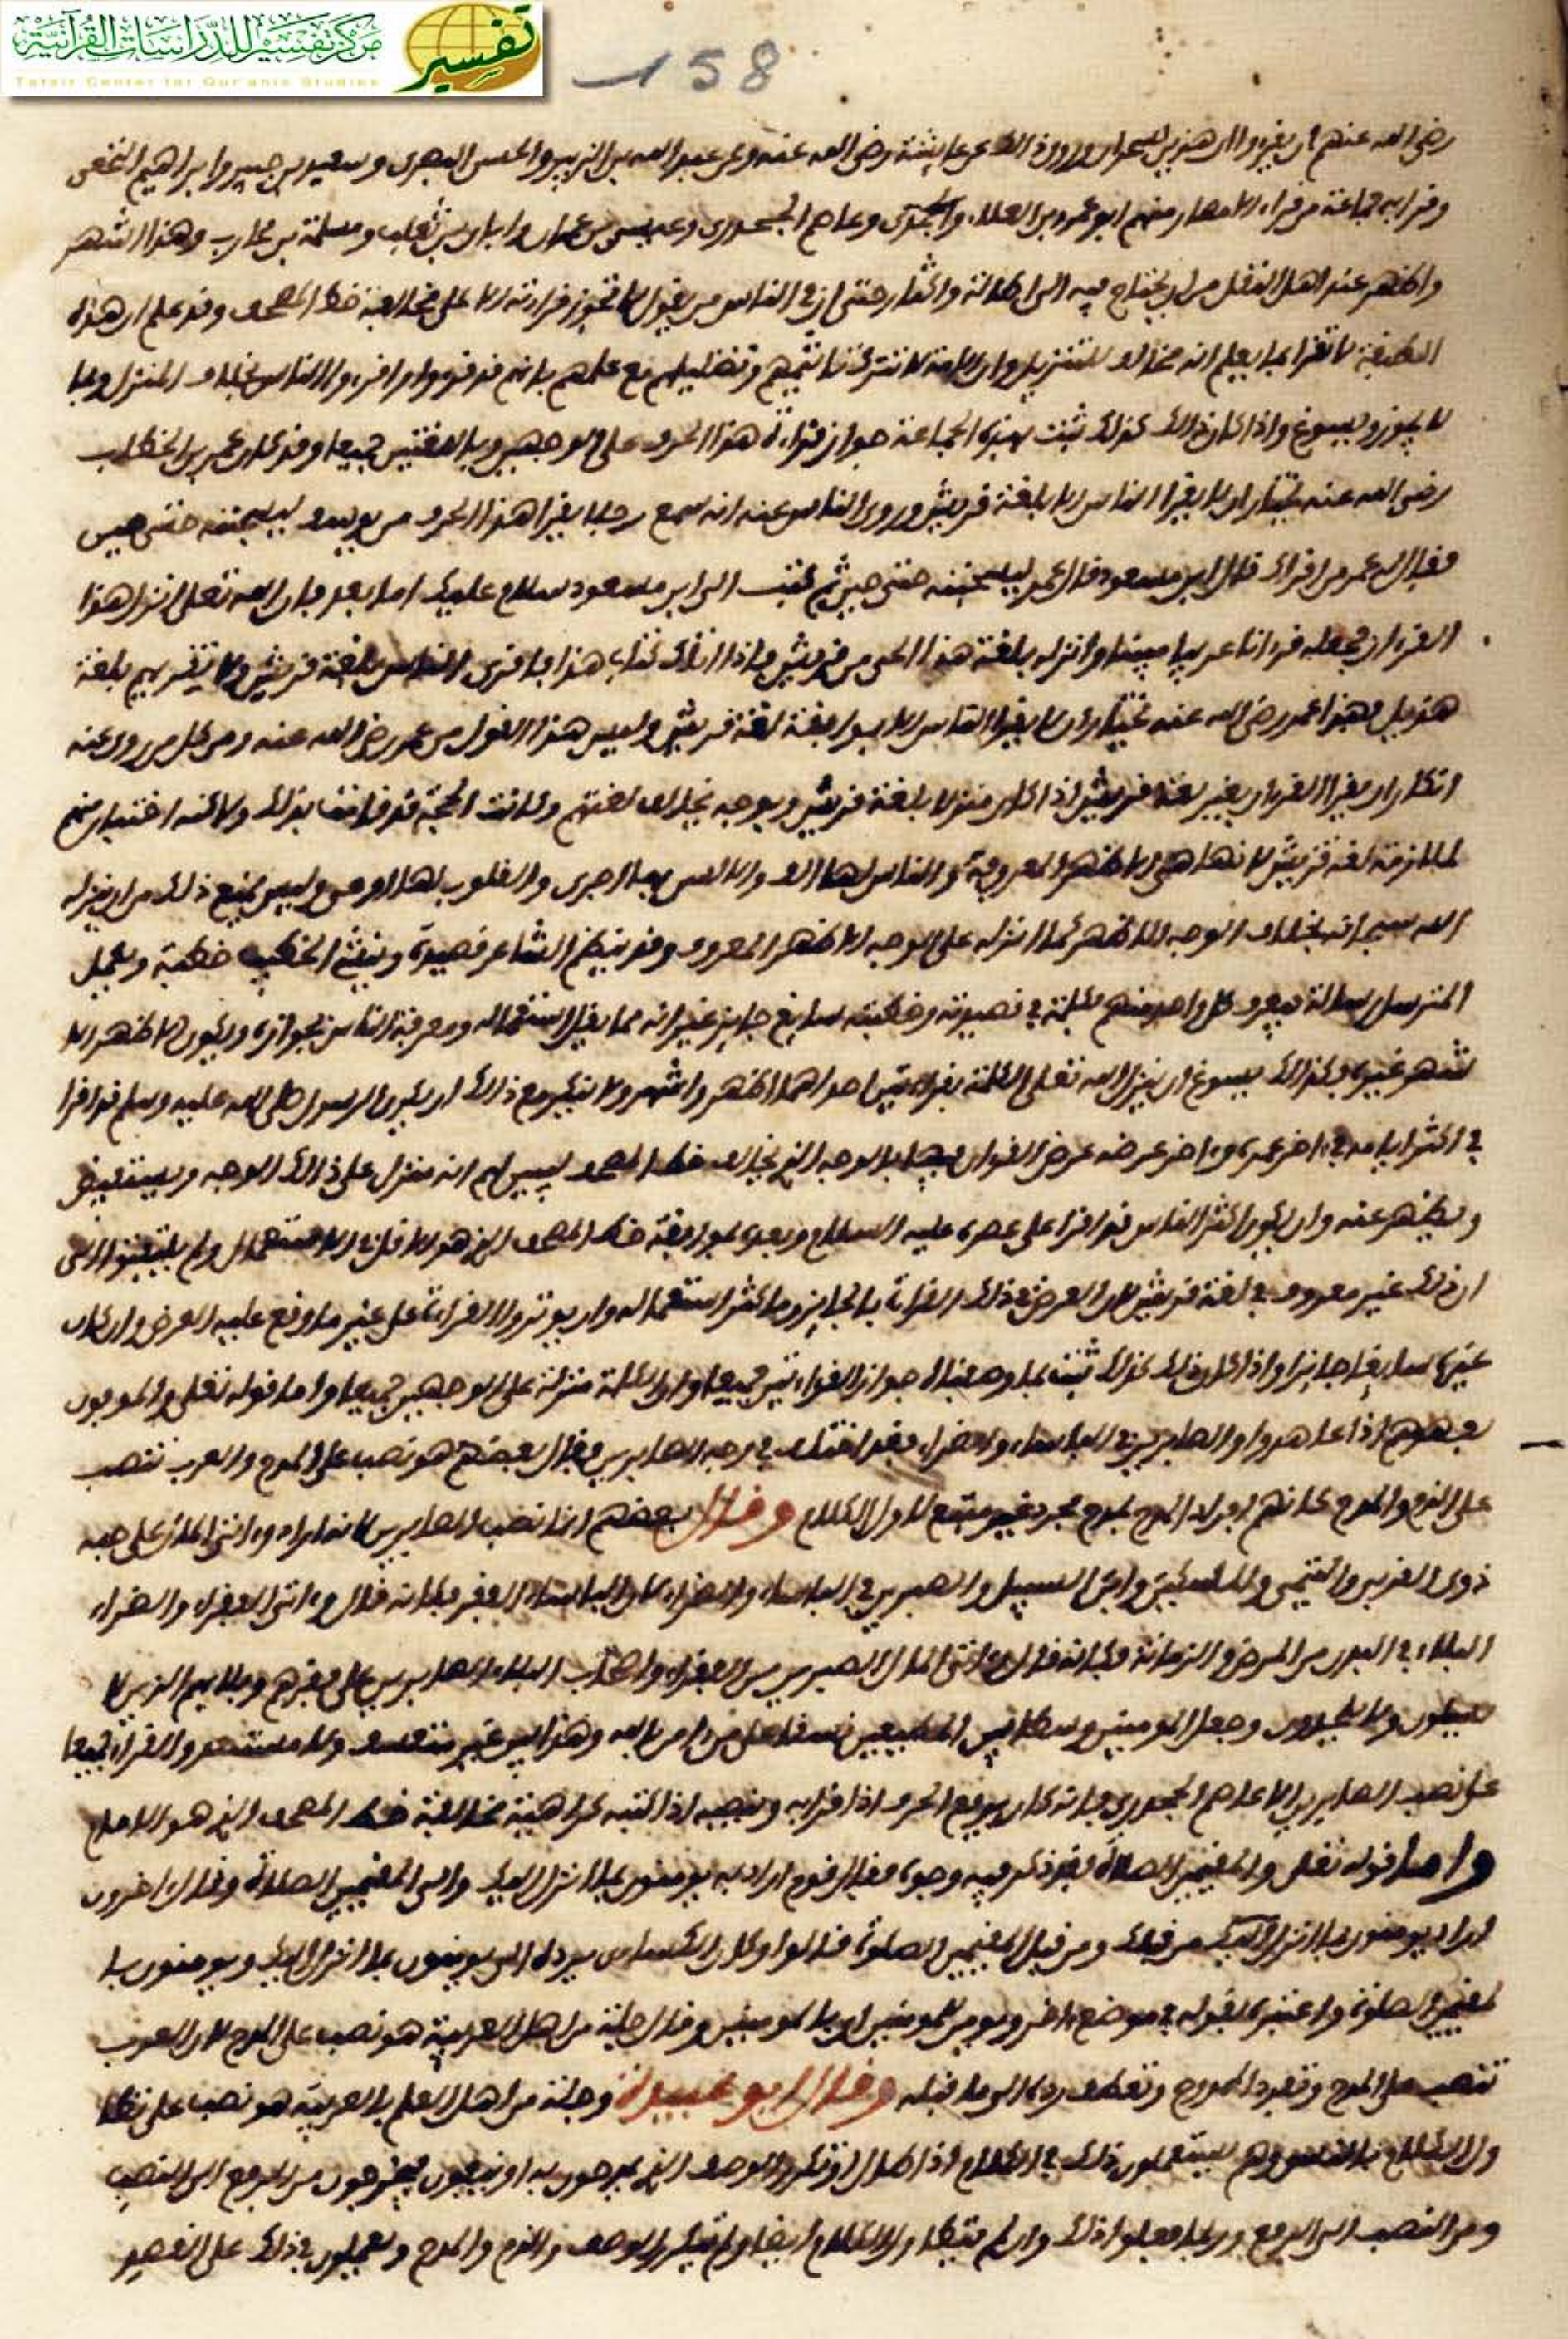 مركز تفسير للدراسات القرآنية
Tafsir Center for Qur'anic Studies
تفسير
158
رضي الله عنهم ان يقروا ان هذين لسحران وروى ذلك عن عايشة رضي الله عنه وعن عبد الله بن الزبير والحسن البصري وسعيد بن جبير وابراهيم النخعي
وقرا به جماعة من قراء الامصار منهم ابو عمرو بن العلاء وعاصم الجحدري وعيسى بن عمر وابان بن ثعلب ومسلمة بن محارب وهذا اشهر
واظهر عند اهل النقل من ان يحتاج فيه الى اطالة واكثار حتى ان في الناس من يقول لا تجوز قراءته الا على مخالفة خط المصحف وقد علم ان هذه
الطبقة لا تقرا بما يعلم انه مخالف للتنزيل وان الامة لا تترك تاثيمهم وتضليلهم مع علمهم بانهم قد قروا واقروا الناس بخلاف المنزل وبما
لا يجوز ويسوغ واذا كان ذلك كذلك ثبت بهذه الجماعة جواز قراءة هذا الحرف على الوجهين وباللغتين جميعا وقد كان عمر بن الخطاب
رضي الله عنه يختار ان لا يقرا الناس الا بلغة قريش وروى الناس عنه انه سمع رجلا يقرا هذا الحرف من يوسف ليسجننه حتى حين
فقال له عمر من اقراك قال ابن مسعود فقال عمر ليسجننه حتى حين ثم كتب الى ابن مسعود سلام عليك اما بعد فان الله تعلى انزل هذا
القرءان فجعله قرءانا عربيا مبينا وانزله بلغة هذا الحي من قريش فاذا اتاك كتابي هذا فاقرئ الناس بلغة قريش ولا تقريهم بلغة
هذيل فهذا عمر رضي الله عنه يختار ان لا يقرا الناس الا بموافقة لغة قريش وليس هذا القول من عمر رضي الله عنه ومن كل من روى عنه
انكار ان يقرا القرءان بغير لغة قريش اذا كان منزلا بلغة قريش وبوجه يخالف لغتهم وكانت الحجة قد قامت بذلك ولاكنه اختيار منهم
لملازمة لغة قريش لانها هي الاظهر المعروفة والناس لها االف والالسن بها اجرى والقلوب لها اوعى وليس يمنع ذلك من ان ينزله
الله سبحانه بخلاف الوجه الاظهر كما انزله على الوجه الاظهر المعروف وقد ينظم الشاعر قصيدة وينشئ الخطيب خطبة ويعمل
المترسل رسالة فيعرف كل واحد منهم كلمة في قصيدته وخطبته سايغ جايز غير انه مما يقل استعماله ومعرفة الناس بجوازه ويكون الاظهر الا
شهر غيره وكذلك يسوغ ان ينزل الله تعلى الكلمة بقراءتين احداهما اظهر واشهر ولا ينكر مع ذلك ان يكون الرسول صلى الله عليه وسلم قد اقرا
في اكثر ايامه في ءاخر عمره وءاخر عرضه عرض القرءان فيها بالوجه الذي يخالف خط المصحف ليبين لهم انه منزل على ذلك الوجه ويستفيض
ويظهر عنه وان يكون اكثر الناس قد اقرا على عصره عليه السلام وبعده بموافقة خط المصحف الذي هو الاقل في الاستعمال ولم يلتفتوا الى
ان ذلك غير معروف في لغة قريش لان الغرض في ذلك القراءة بالجايز وما كثر استعماله وان يوثروا القراءة على غير ما وقع عليه العرض وان كان
غيره سايغا جايزا واذا كان ذلك كذلك ثبت بما وصفناه جواز القراءتين جميعا وان الكلمة منزلة على الوجهين جميعا واما قوله تعلى والموفون
بعهدهم اذا عاهدوا والصابرين في الباساء والضراء فقد اختلف في وجه الصابرين فقال بعضهم هو نصب على المدح والعرب تنصب
على الذم والمدح كانهم افراد الممدوح بمدح مجرد غير متبع لاول الكلام وقال بعضهم انما نصب الصابرين لانه اراد وءاتى المال على حبه
ذوي القربى واليتمى والمسكين وابن السبيل والصبرين في الباساء والضراء لان الباساء الفقر فكانه قال وءاتى الفقراء والضراء
البلاء في البدن من المرض والزمانة فكانه قال وءاتى المال الصبرين من الفقراء واصحاب البلاء الصابرين على فقرهم وبلايهم الذين لا
يسلون ولا يشكون وجعل المومنين وسطا بين المطيعين نسقا على من ءامن بالله وهذا ليس غير متعسف ولا مستبعد والقراء جميعا
على نصب الصابرين الا عاصم الجحدري فانه كان يرفع الحرف اذا قرا به وينصبه اذا كتبه كراهية مخالفة خط المصحف الذي هو الامام
واما قوله تعلى والمقيمين الصلاة فقد ذكر فيه وجوه فقال قوم اراد به يومنون بما انزل اليك والى المقيمين الصلاة وقال ءاخرون
اراد يومنون بما انزل اليك من قبلك ومن قبل المقيمين الصلوة قالوا وكان الكساءي يرده الى يومنون بما انزل اليك ويومنون با
لمقيمين الصلوة واعتبره بقوله في موضع ءاخر ويومن للمومنين اي بالمومنين وقال جلة من اهل العربية هو نصب على المدح لان العرب
تنصب على المدح وتفرد الممدوح وتعطف رده الى ما قبله وقال ابو عبيدة وجلة من اهل العلم بالعربية هو نصب على تطا
ول الكلام بالناس وهم يستعملون ذلك في الكلام اذا طال او تكرر الوصف الذي يمدحون به او ينعتون فيخرجون من الرفع الى النصب
ومن النصب الى الرفع وربما فعلوا ذلك وان لم يتطاول الكلام ايضا ولم يتكرر الوصف والذم والمدح ويعملون في ذلك على القصد